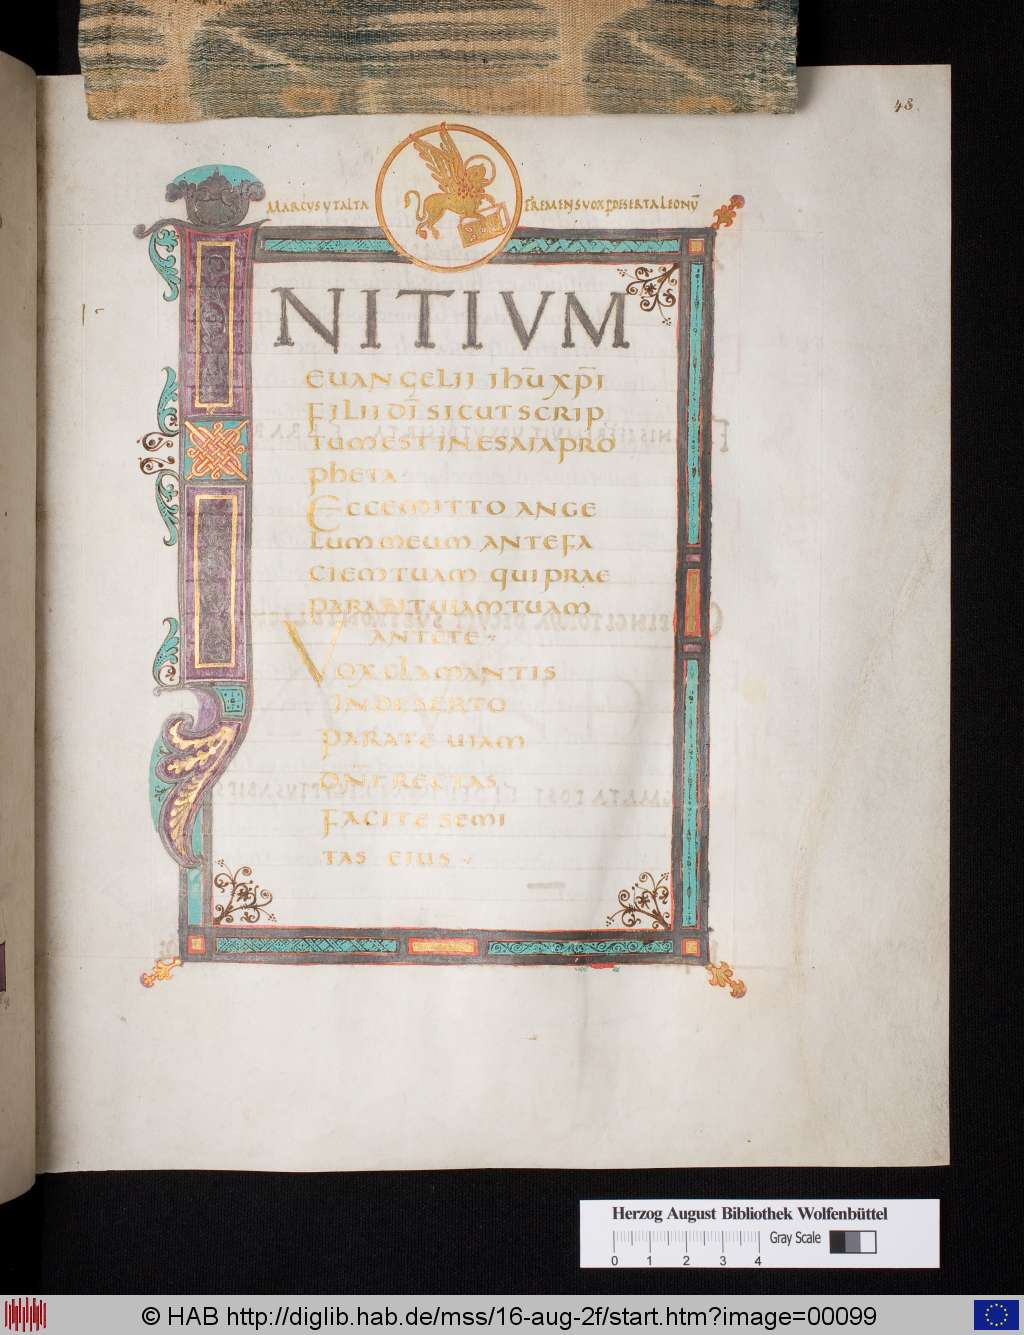 48.
MARCVS VT ALTA FREMENS VOX P DESERTA LEONŪ
INITIVM
EVANGELII IHŪ XP̄I
FILII DĪ SICUT SCRIP
TUM EST IN ESAIA PRO
PHETA·
ECCE MITTO ANGE
LUM MEUM ANTE FA
CIEM TUAM QUI PRAE
PARABIT UIAM TUAM
ANTE TE·
VOX CLAMANTIS
IN DESERTO
PARATE UIAM
DN̄I RECTAS
FACITE SEMI
TAS EIUS·
Herzog August Bibliothek Wolfenbüttel
Gray Scale
0 1 2 3 4
© HAB http://diglib.hab.de/mss/16-aug-2f/start.htm?image=00099